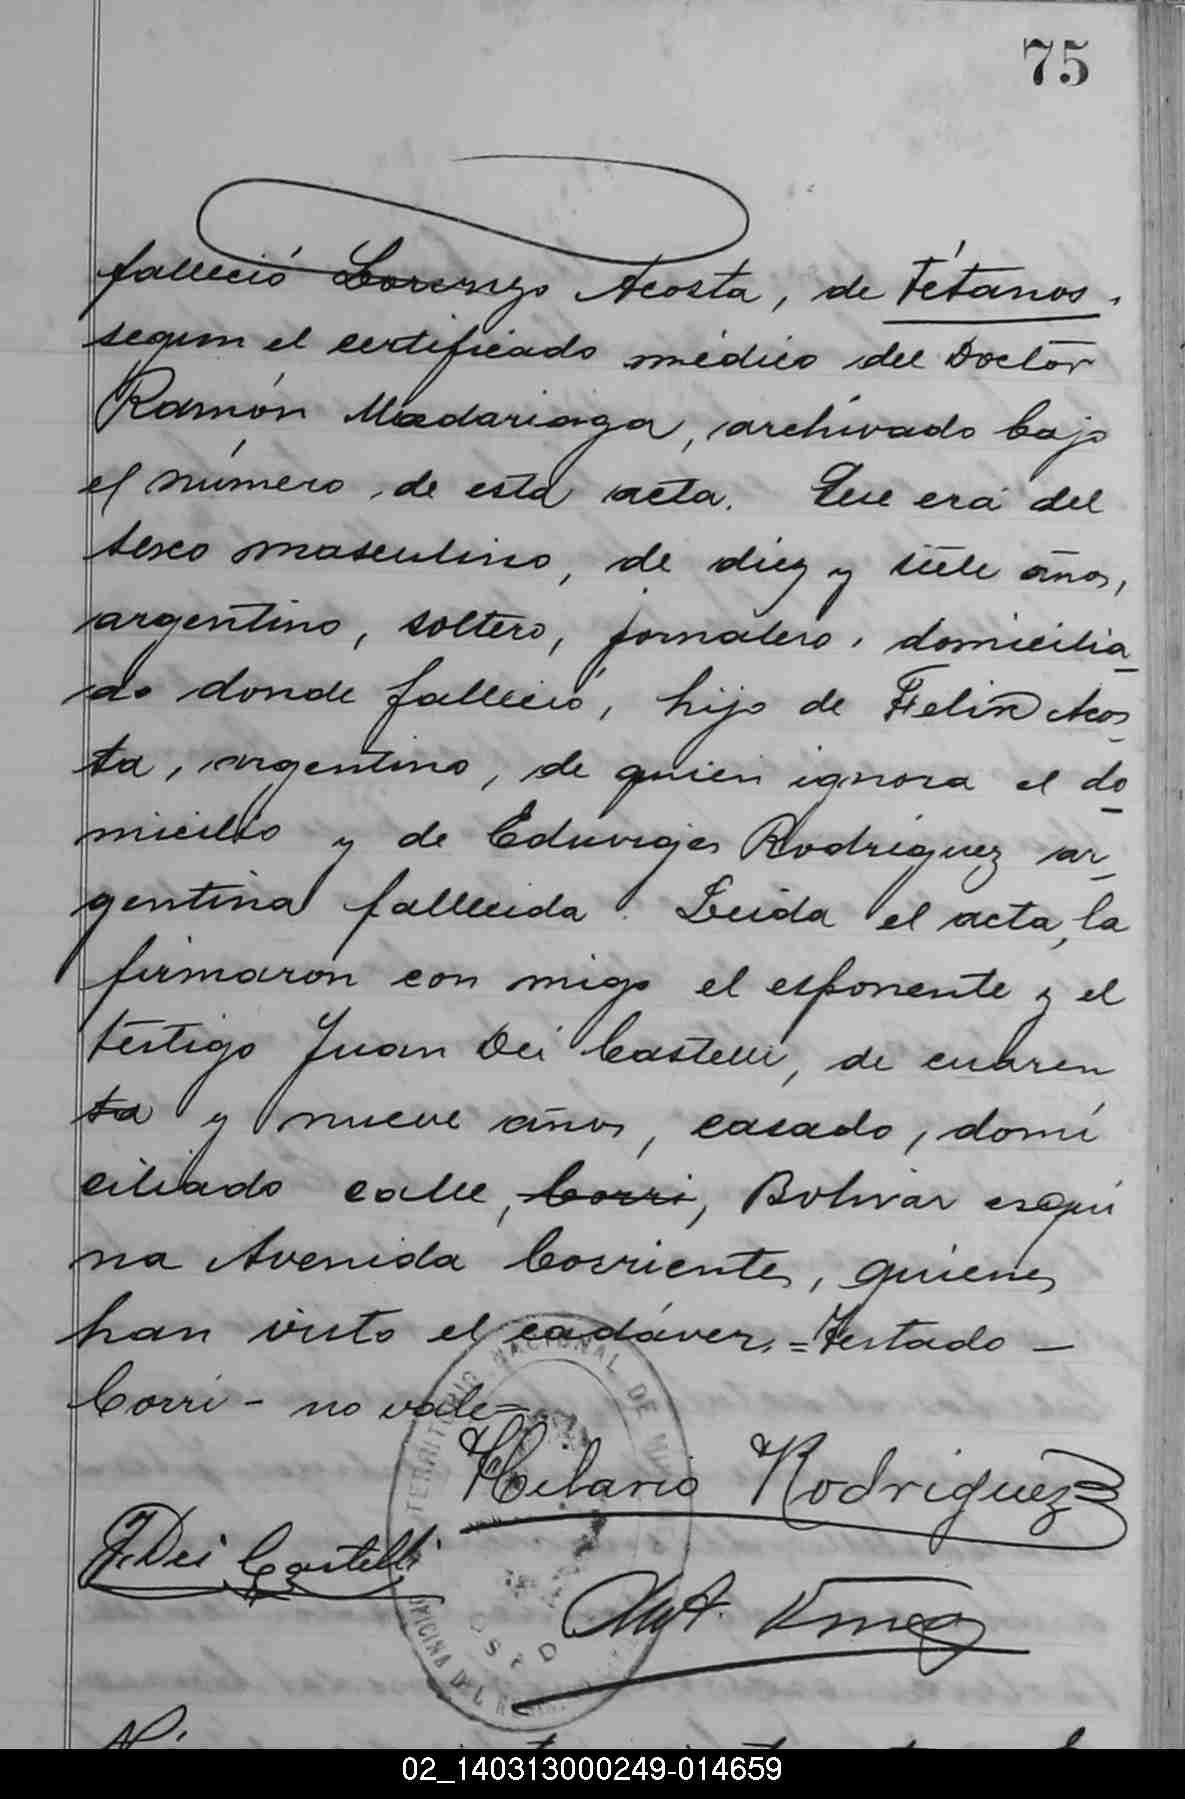 75
falleció Lorenzo Acosta, de Tétanos,
segun el certificado médico del Doctor
Ramón Madariaga, archivado bajo
el número de esta acta. Que era del
sexo masculino, de diez y siete años,
argentino, soltero, jornalero, domicilia_
do donde falleció, hijo de Felix Acos_
ta, argentino, de quien ignora el do_
micilio y de Eduviges Rodriguez ar_
gentina fallecida. Leida el acta, la
firmaron con migo el esponente y el
testigo Juan Dei Castelli, de cuaren
ta y nueve años, casado, domi
ciliado calle, Corri, Bolivar esqui
na Avenida Corrientes, quienes
han visto el cadáver.=Testado —
Corri - no vale=
Hilario Rodriguez
J. Dei Castelli
TERRITORIO NACIONAL DE
OFICINA DEL
02_140313000249-014659